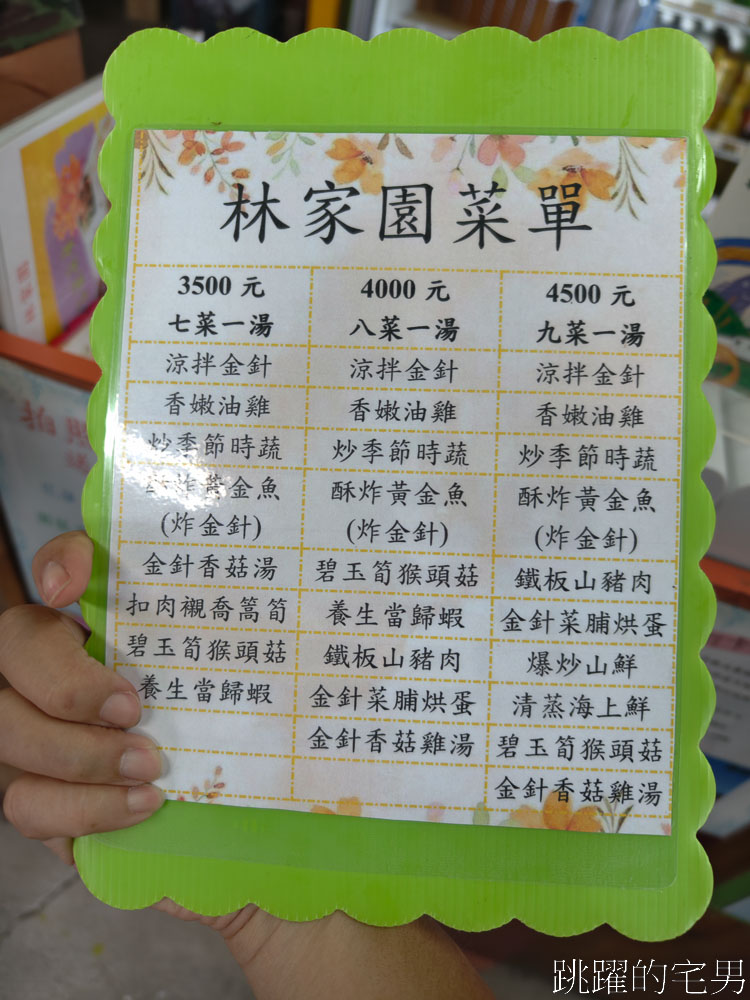 林家園菜單
3500 元 4000 元 4500 元
七菜一湯 八菜一湯 九菜一湯
涼拌金針 涼拌金針 涼拌金針
香嫩油雞 香嫩油雞 香嫩油雞
炒季節時蔬 炒季節時蔬 炒季節時蔬
酥炸黃金魚 酥炸黃金魚 酥炸黃金魚
(炸金針) (炸金針) (炸金針)
金針香菇湯 碧玉筍猴頭菇 鐵板山豬肉
扣肉襯喬篙筍 養生當歸蝦 金針菜脯烘蛋
碧玉筍猴頭菇 鐵板山豬肉 爆炒山鮮
養生當歸蝦 金針菜脯烘蛋 清蒸海上鮮
金針香菇雞湯 碧玉筍猴頭菇
金針香菇雞湯
跳躍的宅男